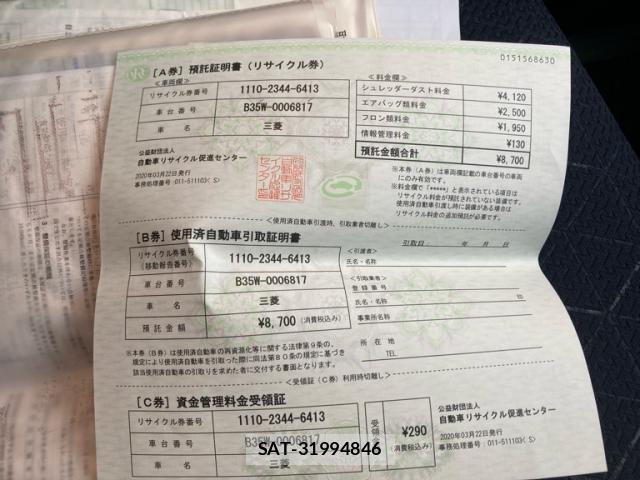 0151568630
[A券] 預託証明書(リサイクル券)
<車両欄>
リサイクル券番号 1110-2344-6413
車台番号 B35W-0006817
車名 三菱
<料金欄>
シュレッダーダスト料金 ¥4,120
エアバッグ類料金 ¥2,500
フロン類料金 ¥1,950
情報管理料金 ¥130
預託金額合計 ¥8,700
公益財団法人
自動車リサイクル促進センター
2020年03月22日発行
事務処理番号:011-511103( S)
※本券(A券)は車両欄記載の車台番号の車両
にのみ有効です。
※料金欄で「*****」と表示されている項目は
リサイクル料金が預託されていない装備です。
使用済自動車引渡し時に装備がある場合は
リサイクル料金の追加預託が必要です。
<使用済自動車引渡時、引取業者切離し>
[B券] 使用済自動車引取証明書
リサイクル券番号
(移動報告番号) 1110-2344-6413
車台番号 B35W-0006817
車名 三菱
預託金額 ¥8,700 (消費税込み)
引取日 年 月 日
<引渡者>
氏名・名称
<引取業者>
登録番号
氏名・名称 印
事業所名称
所在地
TEL
※本券(B券)は使用済自動車の再資源化等に関する法律第9条の、
規定により使用済自動車を引取った際に同法第80条の規定に基づき
該当使用済自動車の引取りを求めた者に交付する書面となります。
<受領証(C券)利用時切離し>
[C券] 資金管理料金受領証
リサイクル券番号 1110-2344-6413
車台番号 B35W-0006817
車名 三菱
受領金額 ¥290
(消費税込み)
公益財団法人
自動車リサイクル促進センター
2020年03月22日発行
事務処理番号:011-511103( S)
SAT-31994846